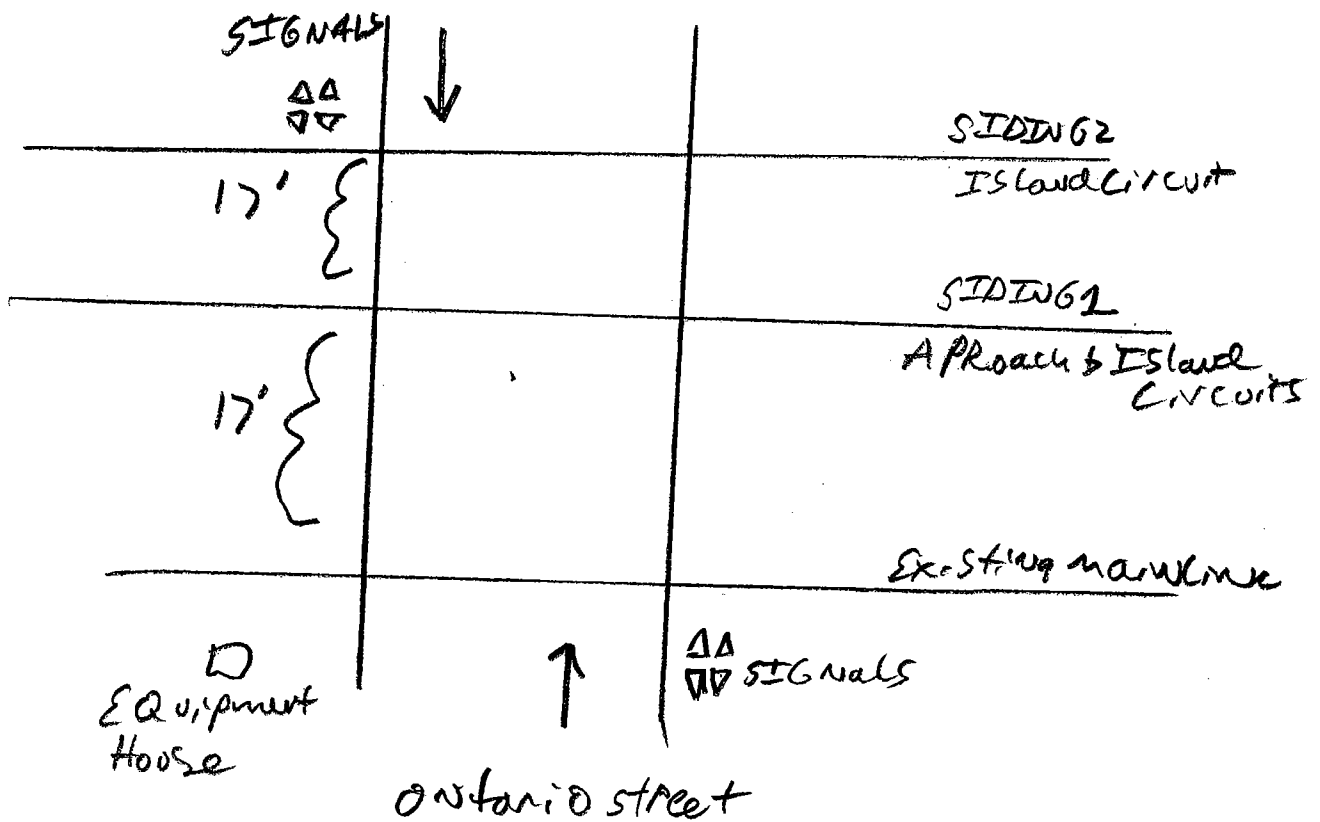 SIGNALS
SIDING2
Island Circuit
17'
SIDING1
APRoach & Island
Circuits
17'
Existing mainline
SIGNals
EQuipment
House
ontario street